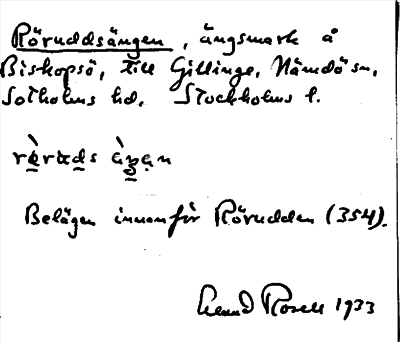 Röruddsängen, ängsmark å
Biskopsö, till Gillinge, Nämdö sn,
Sotholms hd, Stockholms l.
Belägen innanför Rörudden (354).
Rosell 1933